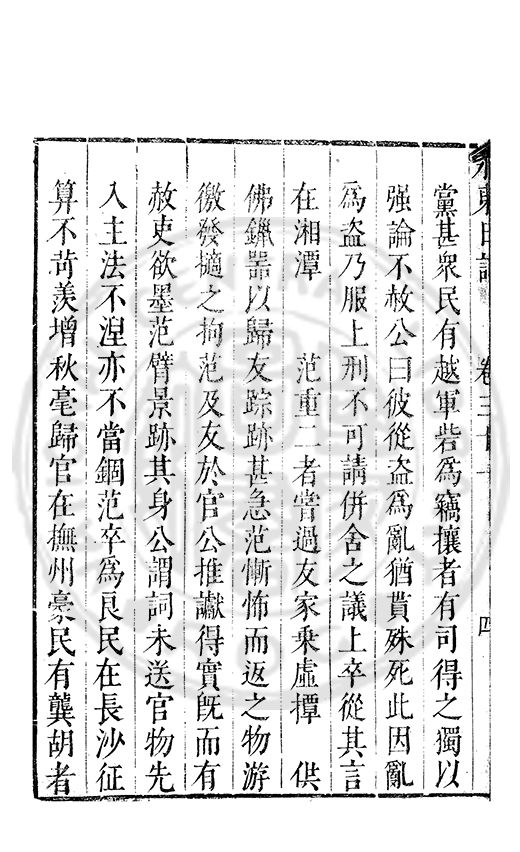 黨甚衆民有越軍砦爲竊攘者有司得之獨以
强論不赦公曰彼從盜爲亂猶貰殊死此因亂
爲盜乃服上刑不可請併舍之議上卒從其言
在湘潭　范重二者甞過友家乗虛撢　供
佛鑞噐以歸友踪跡甚急范慚怖而返之物游
徼發擿之拘范及友於官公推讞得實旣而有
赦吏欲墨范臂景跡其身公謂詞未送官物先
入主法不湼亦不當錮范卒爲良民在長沙征
算不苛羨增秋毫歸官在撫州豪民有龔胡者
卷三十
四